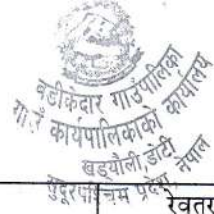 बडीकेदार गाउँपालिका
गाउँ कार्यपालिकाको कार्यालय
खड्यौली डोटी
सुदूरपश्चिम प्रदेश, नेपाल
रेवतर